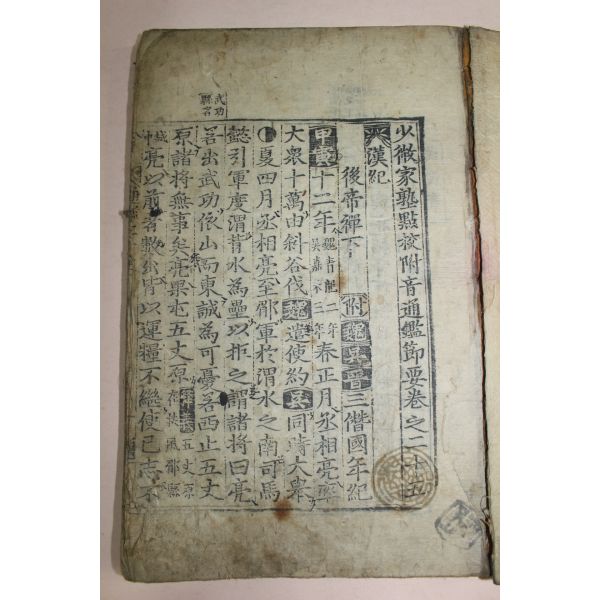 少微家塾點校附音通鑑節要卷之二十五
漢紀
後帝禪下 附魏吳晉三僭國年紀
甲寅十二年魏青龍二年吳嘉禾三年春正月丞相亮率
大衆十萬由斜谷伐魏遣使約吳同時大舉
夏四月丞相亮至郿軍於渭水之南司馬
懿引軍度渭背水為壘以拒之謂諸將曰亮
若出武功依山而東誠為可憂若西止五丈
原諸將無事矣亮果屯五丈原釋義五丈原在扶風郿縣
亮以前者數出皆以運糧不繼使已志不
武功縣名